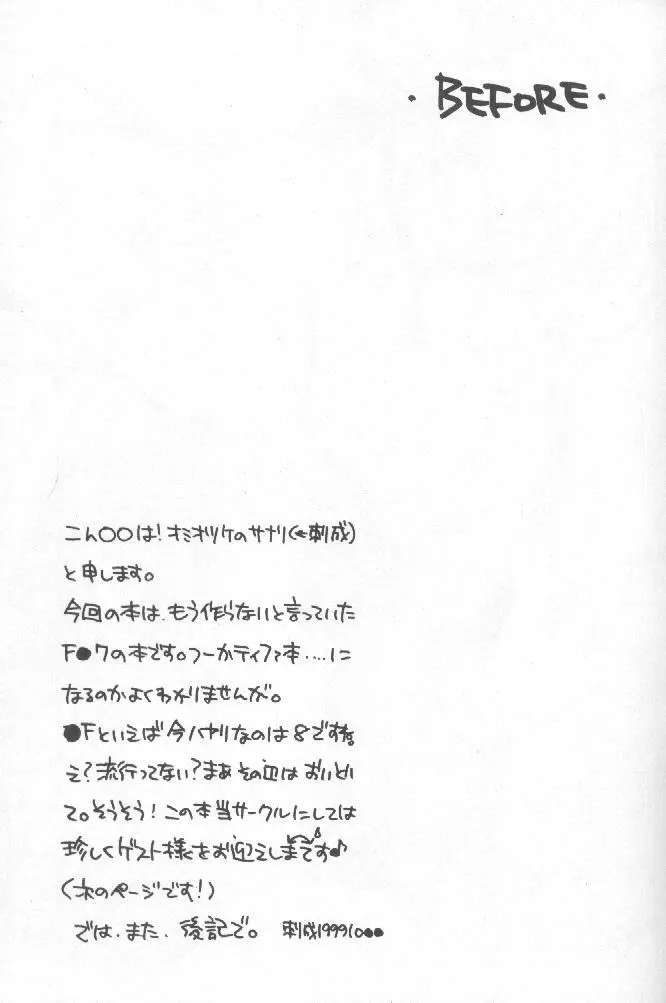 ・BEFORE・
こん○○は!オミオツケのサナリ(←刺成)
と申します。
今回の本は、もう作らないと言っていた
F●7の本です。つーかティファ本‥‥に
なるのかよくわかりませんが。
●Fといえば今ハヤリなのは8ですね
え?流行ってない?まぁその辺はおいとい
て。そうそう!この本当サークルにしては
珍しくゲスト様をお迎えしてます♪
(次のページです!)
では、また、後記で。 刺成199910●●